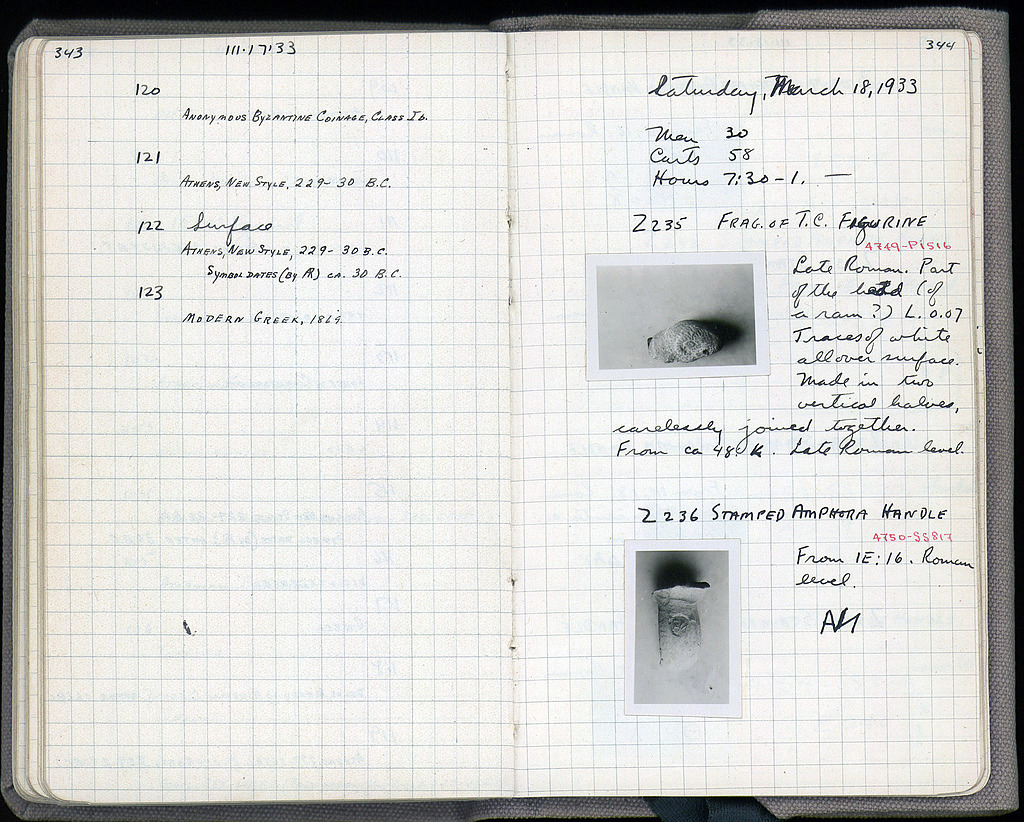 343
III·17·33
120
ANONYMOUS BYZANTINE COINAGE, CLASS Ib.
121
ATHENS, NEW STYLE, 229-30 B.C.
122 Surface
ATHENS, NEW STYLE, 229-30 B.C.
SYMBOL DATES (BY ) CA. 30 B.C.
123
MODERN GREEK, 1869.
344
Saturday, March 18, 1933
Men 30
Carts 58
Hours 7:30-1. —
Z 235 FRAG. OF T.C. FIGURINE
4749-P1516
Late Roman. Part
of the head (of
a ram?) L. 0.07
Traces of white
all over surface.
Made in two
vertical halves,
carelessly joined together.
From ca 48: K. Late Roman level.
Z 236 STAMPED AMPHORA HANDLE
4750-SS817
From 1E:16. Roman
level.